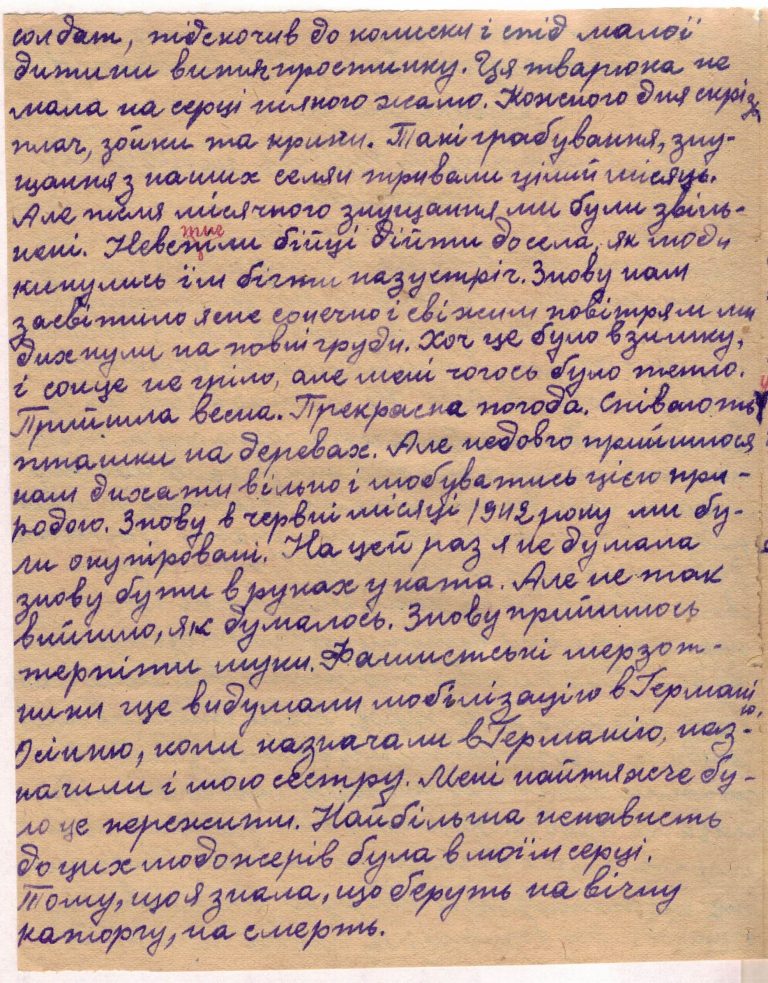 солдат, підскочив до колиски і спід малої
дитини витяг простинку. Ця тварюка не
мала на серці ніякого жалю. Кожного дня скрізь
плач, зойки та крики. Такі грабування, зну-
щання з наших селян тривали цілий місяць.
Але після місячного знущання ми були звіль-
нені. Невспіли бійці дійти до села, як люди
кинулись їм бігти назустріч. Знову нам
засвітило ясне сонечно і свіжим повітрям ми
дихнули на повні груди. Хоч це було взимку,
і сонце не гріло, але мені чогось було тепло.
Прийшла весна. Прекрасна погода. Співають
пташки на деревах. Але недовго прийшлося
нам дихати вільно і любуватись цією при-
родою. Знову в червні місяці 1942 року ми бу-
ли окупіровані. На цей раз я не думала
знову бути в руках у ката. Але не так
вийшло, як думалось. Знову прийшлось
терпіти муки. Фашистські мерзот-
ники ще видумали мобілізацію в Германію.
Осінню, коли назначали в Германію, наз-
начили і мою сестру. Мені найтяжче бу-
ло це пережити. Найбільша ненависть
до цих людожерів була в моїм серці.
Тому, що я знала, що беруть на вічну
каторгу, на смерть.